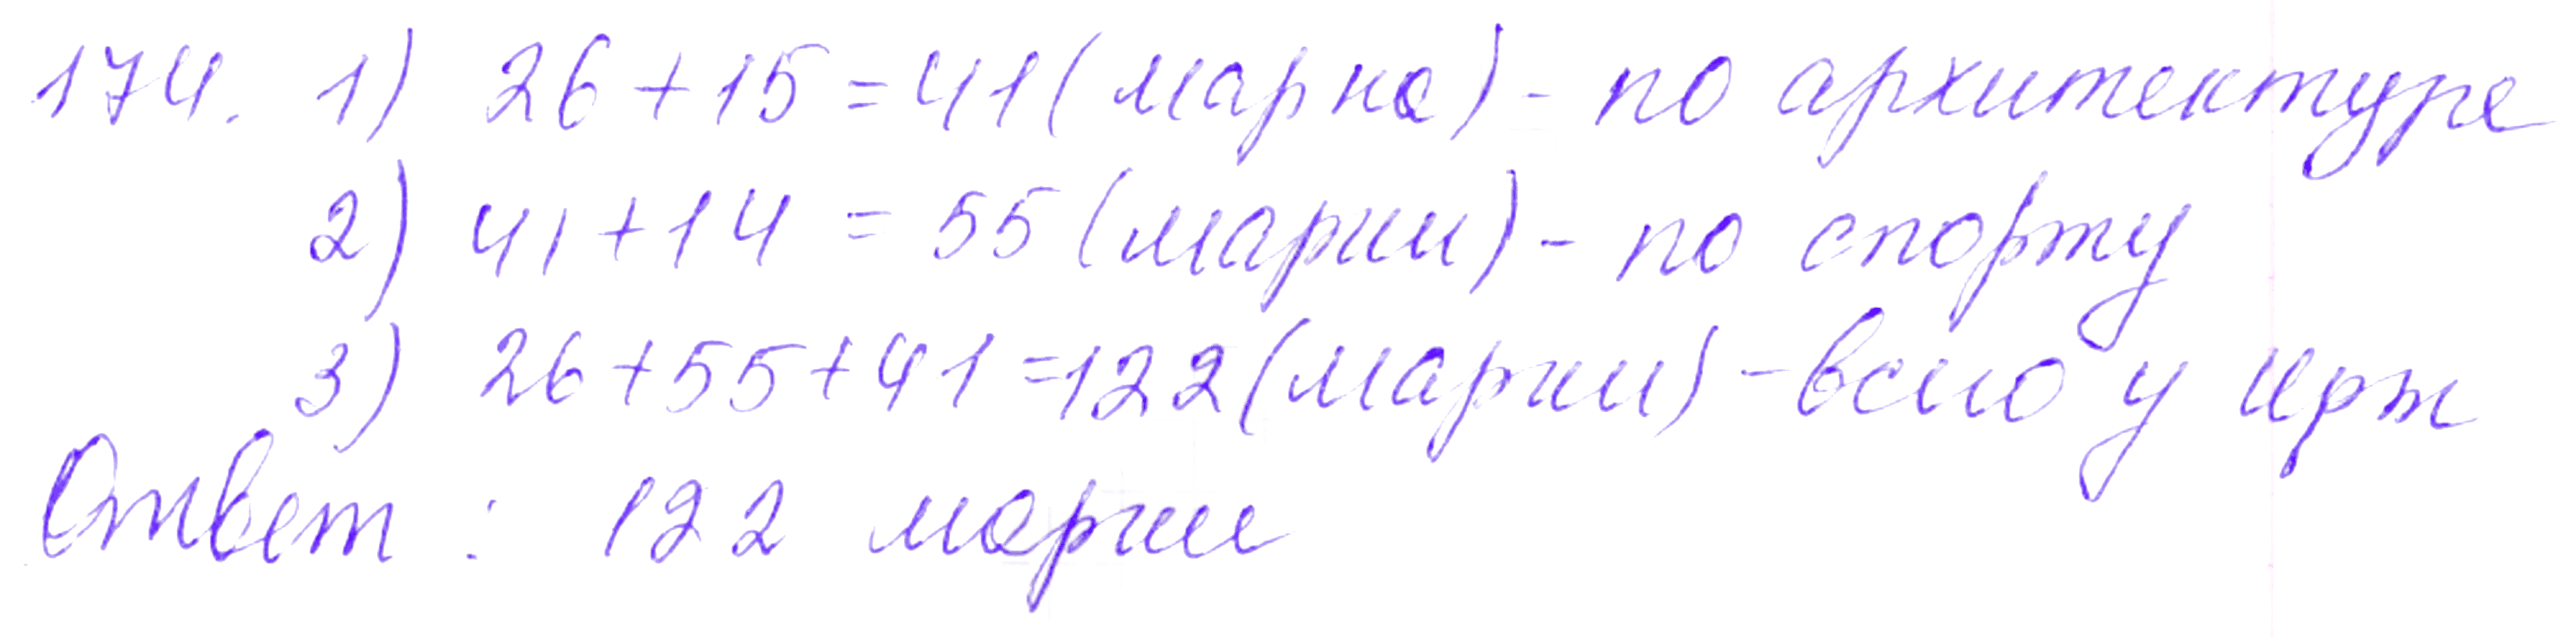 174. 1) 26 + 15 = 41 (марка) - по архитектуре
2) 41 + 14 = 55 (марки) - по спорту
3) 26 + 55 + 41 = 122 (марки) - всего у Иры
Ответ : 122 марки